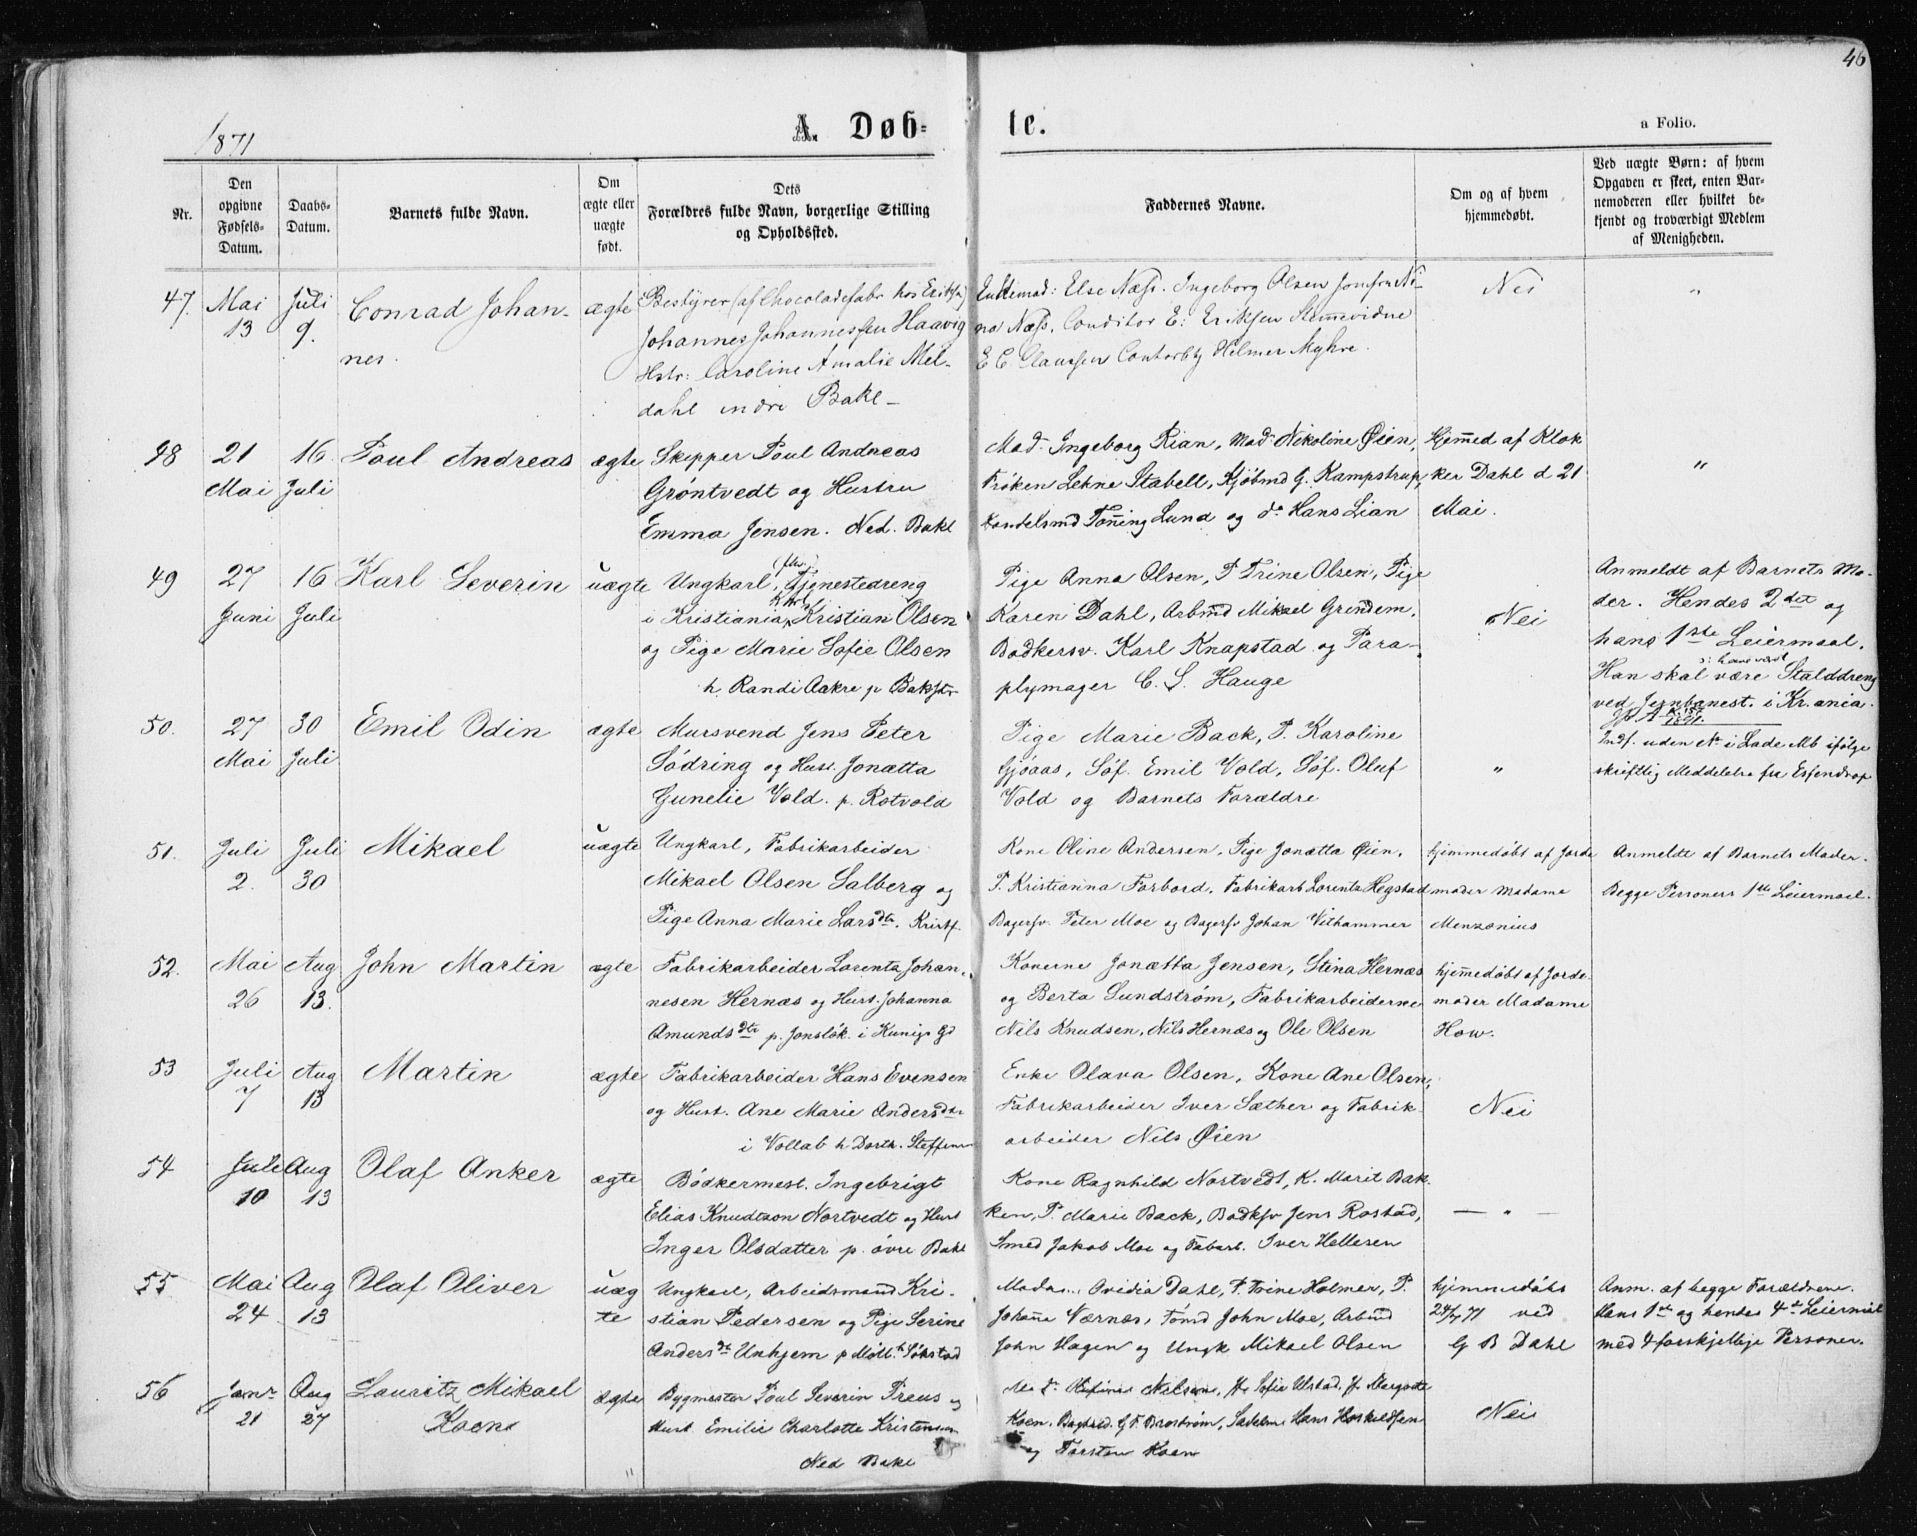 46
1871
A. Døb- te.
a Folio.
Nr.
Den opgivne Fødsels-Datum.
Daabs-Datum.
Barnets fulde Navn.
Om ægte eller uægte født.
Dets Forældres fulde Navn, borgerlige Stilling og Opholdssted.
Faddernes Navne.
Om og af hvem hjemmedøbt.
Ved uægte Børn: af hvem Opgaven er skeet, enten Barnemoderen eller hvilket bekjendt og troværdigt Medlem af Menigheden.
47. Mai 13 Juli 9. Conrad Johan-
nes.
ægte
Bestyrer (af Chocoladefabr hos Erikss)
Johannes Johannessen Haavig
Hstr: Caroline Amalie Mel-
dahl indre Bakl-
Enkemad: Else Næss. Ingeborg Olsen Jomfru Ni-
na Næss. Conditor E: Eriksen
E C Claussen Contorbtj Helmer Myhre.
Nei
"
48 21 Mai 16 Juli Poul Andreas
ægte
Skipper Poul Andreas
Grøntvedt og Hustru
Emma Jensen. Ned. Bakl
Mad. Ingeborg Rian, Mad. Nikoline Øien,
Frøken Lekne Stabell, Kjöbmd G. Kampstrup,
Handelsmd Tønning Lund og do Hans Lian
Hjemmed af Klok
ker Dahl d 21
Mai.
"
49 27 Juni 16 Juli Karl Severin
uægte
Ungkarl, Tjenestedreng
i Kristiania, Karl Kristian Olsen
og Pige Marie Sofie Olsen
h. Randi Aakre p Bakstr.
Pige Anna Olsen, P Trine Olsen, Pige
Karen Dahl, Arbmd Mikael Grendem,
Bødkersv. Karl Knapstad og Para-
plymager C. S. Hauge
Nei
Anmeldt af Barnets Mo-
der. Hendes 2det og
hans 1ste Leiermaal.
Han skal være Stalddreng
ved Jernbanest. i Kr.ania.
50. 27 Mai 30 Juli Emil Odin
ægte
Mursvend Jens Peter
Södring og Hust. Jonetta
Gunelie Vold. p. Rotvold
Pige Marie Back, P. Karoline
Gjöaas, Söf. Emil Vold, Söf. Oluf
Vold og Barnets Forældre
"
Indf. uden No i Lade Mb ifölge
skriftlig Meddelelse fra
51. Juli 2. Juli 30 Mikael
uægte
Ungkarl, Fabrikarbeider
Mikael Olsen Salberg og
Pige Anna Marie Larsdtr. Kristf.
Kone Oline Andersen, Pige Jonetta Øien,
P. Kristianna Forbord, Fabrikarb Lorents Hegstad
Bagersv. Peter Moe og Bagersv Johan Withammer
Hjemmedøbt af Jorde
moder Madame
Menzonius
Anmeldt af Barnets Moder.
Begge Personers 1ste Leiermaal.
52. Mai 26 Aug 13. John Martin
ægte
Fabrikarbeider Lorents Johan-
nesen Hernæs og Hust. Johanna
Amundsdtr p. Jonslök. i Kunigs Gd
Konerne Jonetta Jensen, Stina Hernæs
og Berta Lundström, Fabrikarbeiderne
Nils Knudsen, Nils Hernæs og Ole Olsen
hjemmedøbt af Jorde-
moder Madame
How.
53 Juli 7 Aug 13 Martin
ægte
Fabrikarbeider Hans Evensen
og Hust. Ane Marie Andersdtr
i Vollab h Dorth. Steffensen
Enke Olava Olsen, Kone Ane Olsen,
Fabrikarbeider Iver Sæther og Fabrik-
arbeider Nils Øien
Nei
54 Juli 10 Aug 13 Olaf Anker
ægte
Bödkermest. Ingebrigt
Elias Knudtzon Nortvedt og Hust
Inger Olsdatter p. övre Bakl
Kone Ragnhild Nortvedt, K. Marit Bak-
ken, P. Marie Back, Bødksv Jens Rostad,
Smed Jakob Moe og Fabarb. Iver Hellesen
— " —
55 Mai 24 Aug 13 Olaf Oliver
uæg
te
Ungkarl, Arbeidsmand Kri-
stian Pedersen og Pige Serine
Andersdt Unhjem p Möllb. Søkstad
Madam Ovidia Dahl, P. Trine Holmer, P.
Johanne Værnæs, Tömd John Moe, Arbmd
John Hagen og Ungk Mikael Olsen
hjemmedøbt
24/7 71 ved
G B Dahl
Anm. af begge Forældrene.
Hans 1ste og hendes 4de Leiermaal
med 4 forskjellige Personer.
56 Janr 21 Aug 27 Lauritz Mikael
Koen
ægte
Bygmester Poul Severin Preus og
Hust Emilie Charlotte Kristensen
Ned Bakl
Nilsen, Fr Sofie Ulstad, Fr Margrete
Koen, G F. Broström, Hans Hoskuldsen
og Torsten Koen
Nei
"